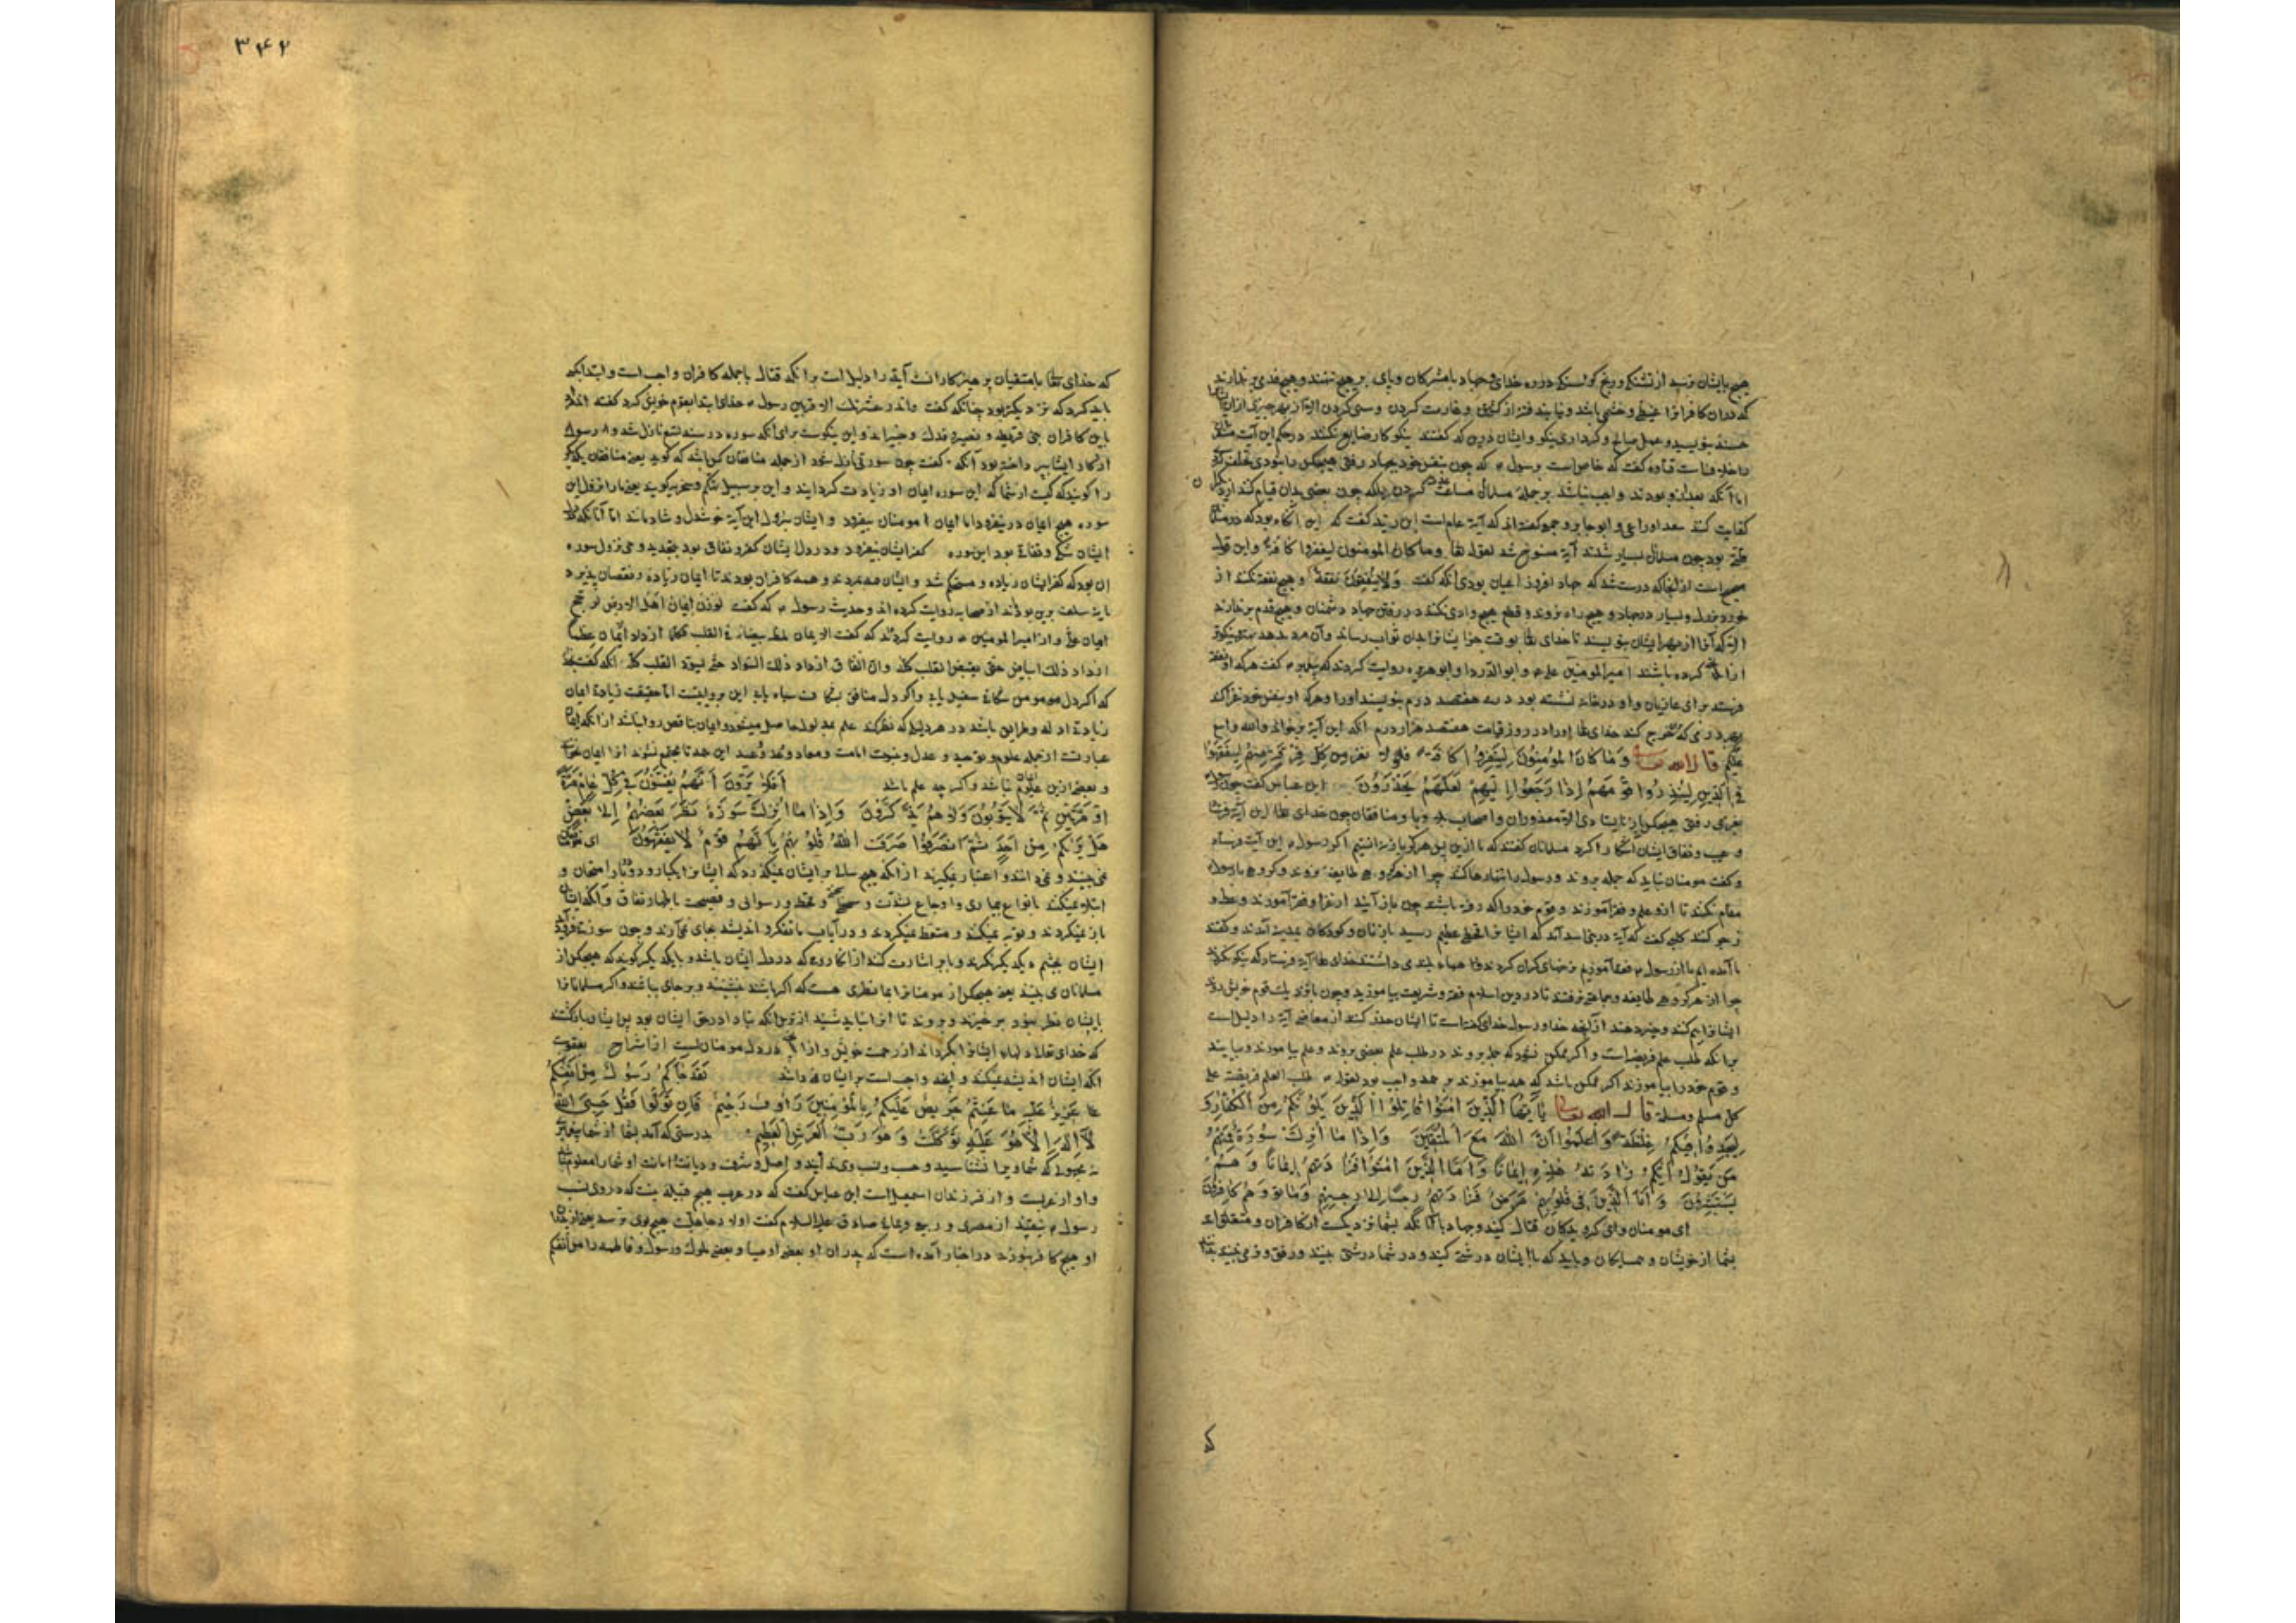 هیچ بایشان نرسد از تشنکی و رنج و کرسنکی در ره خدای و جهاد با مشرکان و پای بر هیچ ننهند و هیچ قدمی بر ندارند
که بدان کافرانرا غیظ و خشمی باشد و نیابند فتنه از کشتن و غارت کردن و سبی کردن الا
حسنه بنویسند و عمل صالح و کرداری نیکو و ایشان درین که کفتند نیکوکار ضایع نکنند در حکم این آیت
قتاده کفت که خاص است برسول که چون بنفس خود بجهاد رفتی هیچکس را نبودی
اما آنکه بعد ازو بودند واجب نباشد بر جمله مسلمانان مساعدت کردن بلکه چون بعضی بدان قیام کنند از دیکران
کفایت کند و جمعی کفته اند که آیة عام است ابن زید کفت که این آنکاه بود که در مسلمانان
قلة بود چون مسلمانان بسیار شدند آیة منسوخ شد لقوله تعا وما کان المومنون لینفروا کافة و این قول
صحیح است از آنجا که درست شد که جهاد از فروض اعیان بودی آنکه کفت وَلا یُنفِقُونَ نَفَقَةً و هیچ نفقه نکنند از
خورد و بزرک و بسیار در جهاد و هیچ راه نروند و قطع هیچ وادی نکنند در رفتن جهاد دشمنان و هیچ قدم بر ندارند
الا که آنرا از بهر ایشان بنویسند تا خدای تعا بوقت جزا ایشانرا بدان ثواب رساند و آن مزد بدهد نیکوتر
از آنکه کرده باشند امیرالمومنین علی و ابوالدردا و ابوهریره روایت کردند که پیغمبر کفت هرکه او نفقه
فرستد برای غازیان و او در خانه نشسته بود بهر درمی هفتصد درم بنویسند او را و هرکه او بنفس خود غزا کند
بهر درمی که خرج کند خدای تعا او را در روز قیامت هفتصد هزار درم آنکه این آیة بر خواند والله واسع
علیم قال الله تعالی وَمَا کَانَ المُؤمِنُونَ لِیَنفِرُوا کَافَّةً فَلَولا نَفَرَ مِن کُلِّ فِرقَةٍ مِنهُم لِیَتَفَقَّهُوا
فِی الدِّینِ لِیُنذِرُوا قَومَهُم اِذَا رَجَعُوا اِلَیهِم لَعَلَّهُم یَحذَرُونَ ابن عباس کفت چون رسول
بغزای رفتی هیچکس باز نایستادی الا معذوران و اصحاب و منافقان چون خدای تعا این آیة فرستاد
و عیب و نفاق ایشان آشکارا کرد مسلمانان کفتند که ما ازین پس هرکز باز نایستیم اکر رسول این آیت فرستاد
و کفت مومنان نباید که جمله بروند و رسول را تنها رها کنند چرا از هر کروهی طایفه نروند و کروهی با رسول
مقام نکنند تا ازو علم و فقه آموزند و قوم خود را که رفته باشند چون باز آیند از غزا و فقه آموزند و وعظ و
زجر کنند کلبی کفت که آیة در بنی اسد آمد که ایشانرا قحطی عظیم رسید با زنان و کودکان بمدینه آمدند و کفتند
ما آمده ایم تا از رسول فقه آموزیم
چرا از هر کروهی طایفه و جماعتی نرفتند تا در دین اسلام فقه و شریعت بیاموزند و چون باز آیند با قوم خویش روند
ایشانرا بیم کنند و خبر دهند از آنچه خدا و رسول خدای کفته است تا ایشان حذر کنند از معاصی آیة را دلیل است
برانکه طلب علم فریضه است و اکر ممکن نبود که جمله بروند در طلب علم بعضی بروند و علم بیاموزند و بیایند
و قوم خود را بیاموزند اکر ممکن باشد که همه بیاموزند بر همه واجب بود لقوله طلب العلم فریضة علی
کل مسلم و مسلمة قال الله تعالی یَا اَیُّهَا الَّذِینَ اٰمَنُوا قَاتِلُوا الَّذِینَ یَلُونَکُم مِنَ الکُفَّارِ وَ
لیَجِدُوا فِیکُم غِلظَةً وَ اعلَمُوا اَنَّ اللهَ مَعَ المُتَّقِینَ وَاِذَا مَا اُنزِلَت سُورَةٌ فَمِنهُم
مَن یَقُولُ اَیُّکُم زَادَتهُ هٰذِهِ اِیمَانًا وَ اَمَّا الَّذِینَ اٰمَنُوا فَزَادَتهُم اِیمَانًا وَ هُم
یَستَبشِرُونَ وَ اَمَّا الَّذِینَ فِی قُلُوبِهِم مَرَضٌ فَزَادَتهُم رِجسًا اِلٰی رِجسِهِم وَ مَاتُوا وَ هُم کَافِرُونَ
ای مومنان و ای کرویدکان قتال کنید و جهاد با آنانکه بشما نزدیک است از کافران و متصل اند
بشما از خویشان و همسایکان و باید که با ایشان درشتی کنید و در شما درشتی بینند و رفق و نرمی نبینند
۳۴۲
که خدای تعا با متقیان و پرهیزکارانست آیة را دلیل است برانکه قتال با جمله کافران واجب است و ابتدا بآنکه
باید کرد که نزدیکتر بود چنانکه کفت وانذر عشیرتک الاقربین رسول خدای ابتدا بقوم خویش کرد کفته اند
باین کافران بنی قریظه و نضیر و فدک و خیبر اند و این نیکوست برای آنکه سوره در سنه تسع نازل شد و رسول
از کار ایشان پرداخته بود آنکه کفت چون سورتی نازل شود از جمله منافقان کس باشد که کوید یعنی منافقان یکدیکر
را کویند که کیست از شما که این سوره ایمان او زیادت کردانید و این بر سبیل تهکم و سخریه کویند یعنی ما را نزول این
سوره هیچ ایمان در نیفزود اما ایمان مومنان بیفزود و ایشان بنزول این آیة خوشدل و شادمانند اما آنانکه در دل
ایشان شک و نفاق بود این سوره کفر ایشان بیفزود و در دل ایشان کفر و نفاق بود بتجدید وحی و نزول سوره
آن بود که کفر ایشان زیاده و مستحکم شد و ایشان بمردند و همه کافران بودند تا ایمان زیاده و نقصان پذیرد
سلف برین بوده اند از صحابه روایت کرده اند و حدیث رسول که کفت لو وزن ایمان اهل الارض لرجح
ایمان علی و از امیرالمومنین روایت کردند که کفت الایمان لمظة بیضاء فی القلب کلما ازداد ایمان عظما
ازداد ذلک البیاض حتی یبیض القلب کله و ان النفاق ازداد ذلک السواد حتی یسود القلب کله آنکه کفت بخدا
که اکر دل مومن بشکافند سفید یابند و اکر دل منافق بشکافند سیاه یابند این روایتست اما حقیقت زیادة ایمان
زیادة ادله و طرایق باشد در هر دلیلی که نظر کند علم بمدلول حاصل میشود و ایمان ناقص روا نباشد از آنکه ایمان
عبارتست از جمله علوم توحید و عدل و نبوت امامت و معاد و وعد و وعید این جمله تا مجتمع نشوند آنرا ایمان نخوانند
و بعضی ازین علوم ایمان نباشد و اکر چه علم باشد اَوَلَا یَرَونَ اَنَّهُم یُفتَنُونَ فِی کُلِّ عَامٍ مَرَّةً
اَو مَرَّتَینِ ثُمَّ لَا یَتُوبُونَ وَلَا هُم یَذَّکَّرُونَ وَاِذَا مَا اُنزِلَت سُورَةٌ نَظَرَ بَعضُهُم اِلٰی بَعضٍ
هَل یَرٰیکُم مِن اَحَدٍ ثُمَّ انصَرَفُوا صَرَفَ اللهُ قُلُوبَهُم بِاَنَّهُم قَومٌ لَا یَفقَهُونَ
نمی بینند و نمی دانند و اعتبار نمیکیرند از آنکه هیچ سالی بر ایشان نمیکذرد که ایشانرا یکبار و دو بار امتحان و
ابتلا نمیکنند بانواع بیماری و اوجاع شدت و سختی و قحط و رسوائی و فضیحت باظهار نفاق و آنکه ایشان
باز نمیکردند و توبه نمیکنند و متعظ نمیکردند و در آیات ما تفکر و اندیشه بجای نمی آرند و چون سورتی فرو آید
ایشان بچشم بیکدیکر نکرند و با بر اشارت کنند از انکاری که در دل ایشان باشد و با یکدیکر کویند که هیچکس از
مسلمانان می بیند یعنی هیچکس از مومنانرا بما نظری هست که اکر باشد بنشینند و بر جای باشند و اکر مسلمانانرا
بایشان نظر نبود برخیزند و بروند تا آنرا نباید شنید از ترس آنکه نباید در حق ایشان بود پس ایشان بازکشتند
که خدای تعا دلهای ایشانرا بکرداند از رحمت خویش و از آنچه در دل مومنان است از انشراح بعقوبت
آنکه ایشان اندیشه نمیکنند و آنچه واجب است بر ایشان ندانند لَقَد جَاءَکُم رَسُولٌ مِن اَنفُسِکُم
عَزِیزٌ عَلَیهِ مَا عَنِتُّم حَرِیصٌ عَلَیکُم بِالمُؤمِنِینَ رَؤُوفٌ رَحِیمٌ فَاِن تَوَلَّوا فَقُل حَسبِیَ اللهُ
لَا اِلٰهَ اِلَّا هُوَ عَلَیهِ تَوَکَّلتُ وَ هُوَ رَبُّ العَرشِ العَظِیمِ بدرستی که آمد بشما از شما پیغامبر
که شما ویرا بشناسید و حسب و نسب وی دانید و اصل و شرف و دیانت و امانت او شما را معلوم باشد
و او از عربست و از فرزندان اسمعیل است ابن عباس کفت که در عرب هیچ قبیله نیست که در وی نسب
رسول نیفتد از مضری و ربیعی و یمانی صادق علیه السلام کفت او از جاهلیت هیچ بوی نرسد یعنی از پدران
او هیچ کافر نبودند در اخبار آمده است که پدران او بعضی اوصیا و بعضی ملوک و رسول و فاطمه را من انفسکم